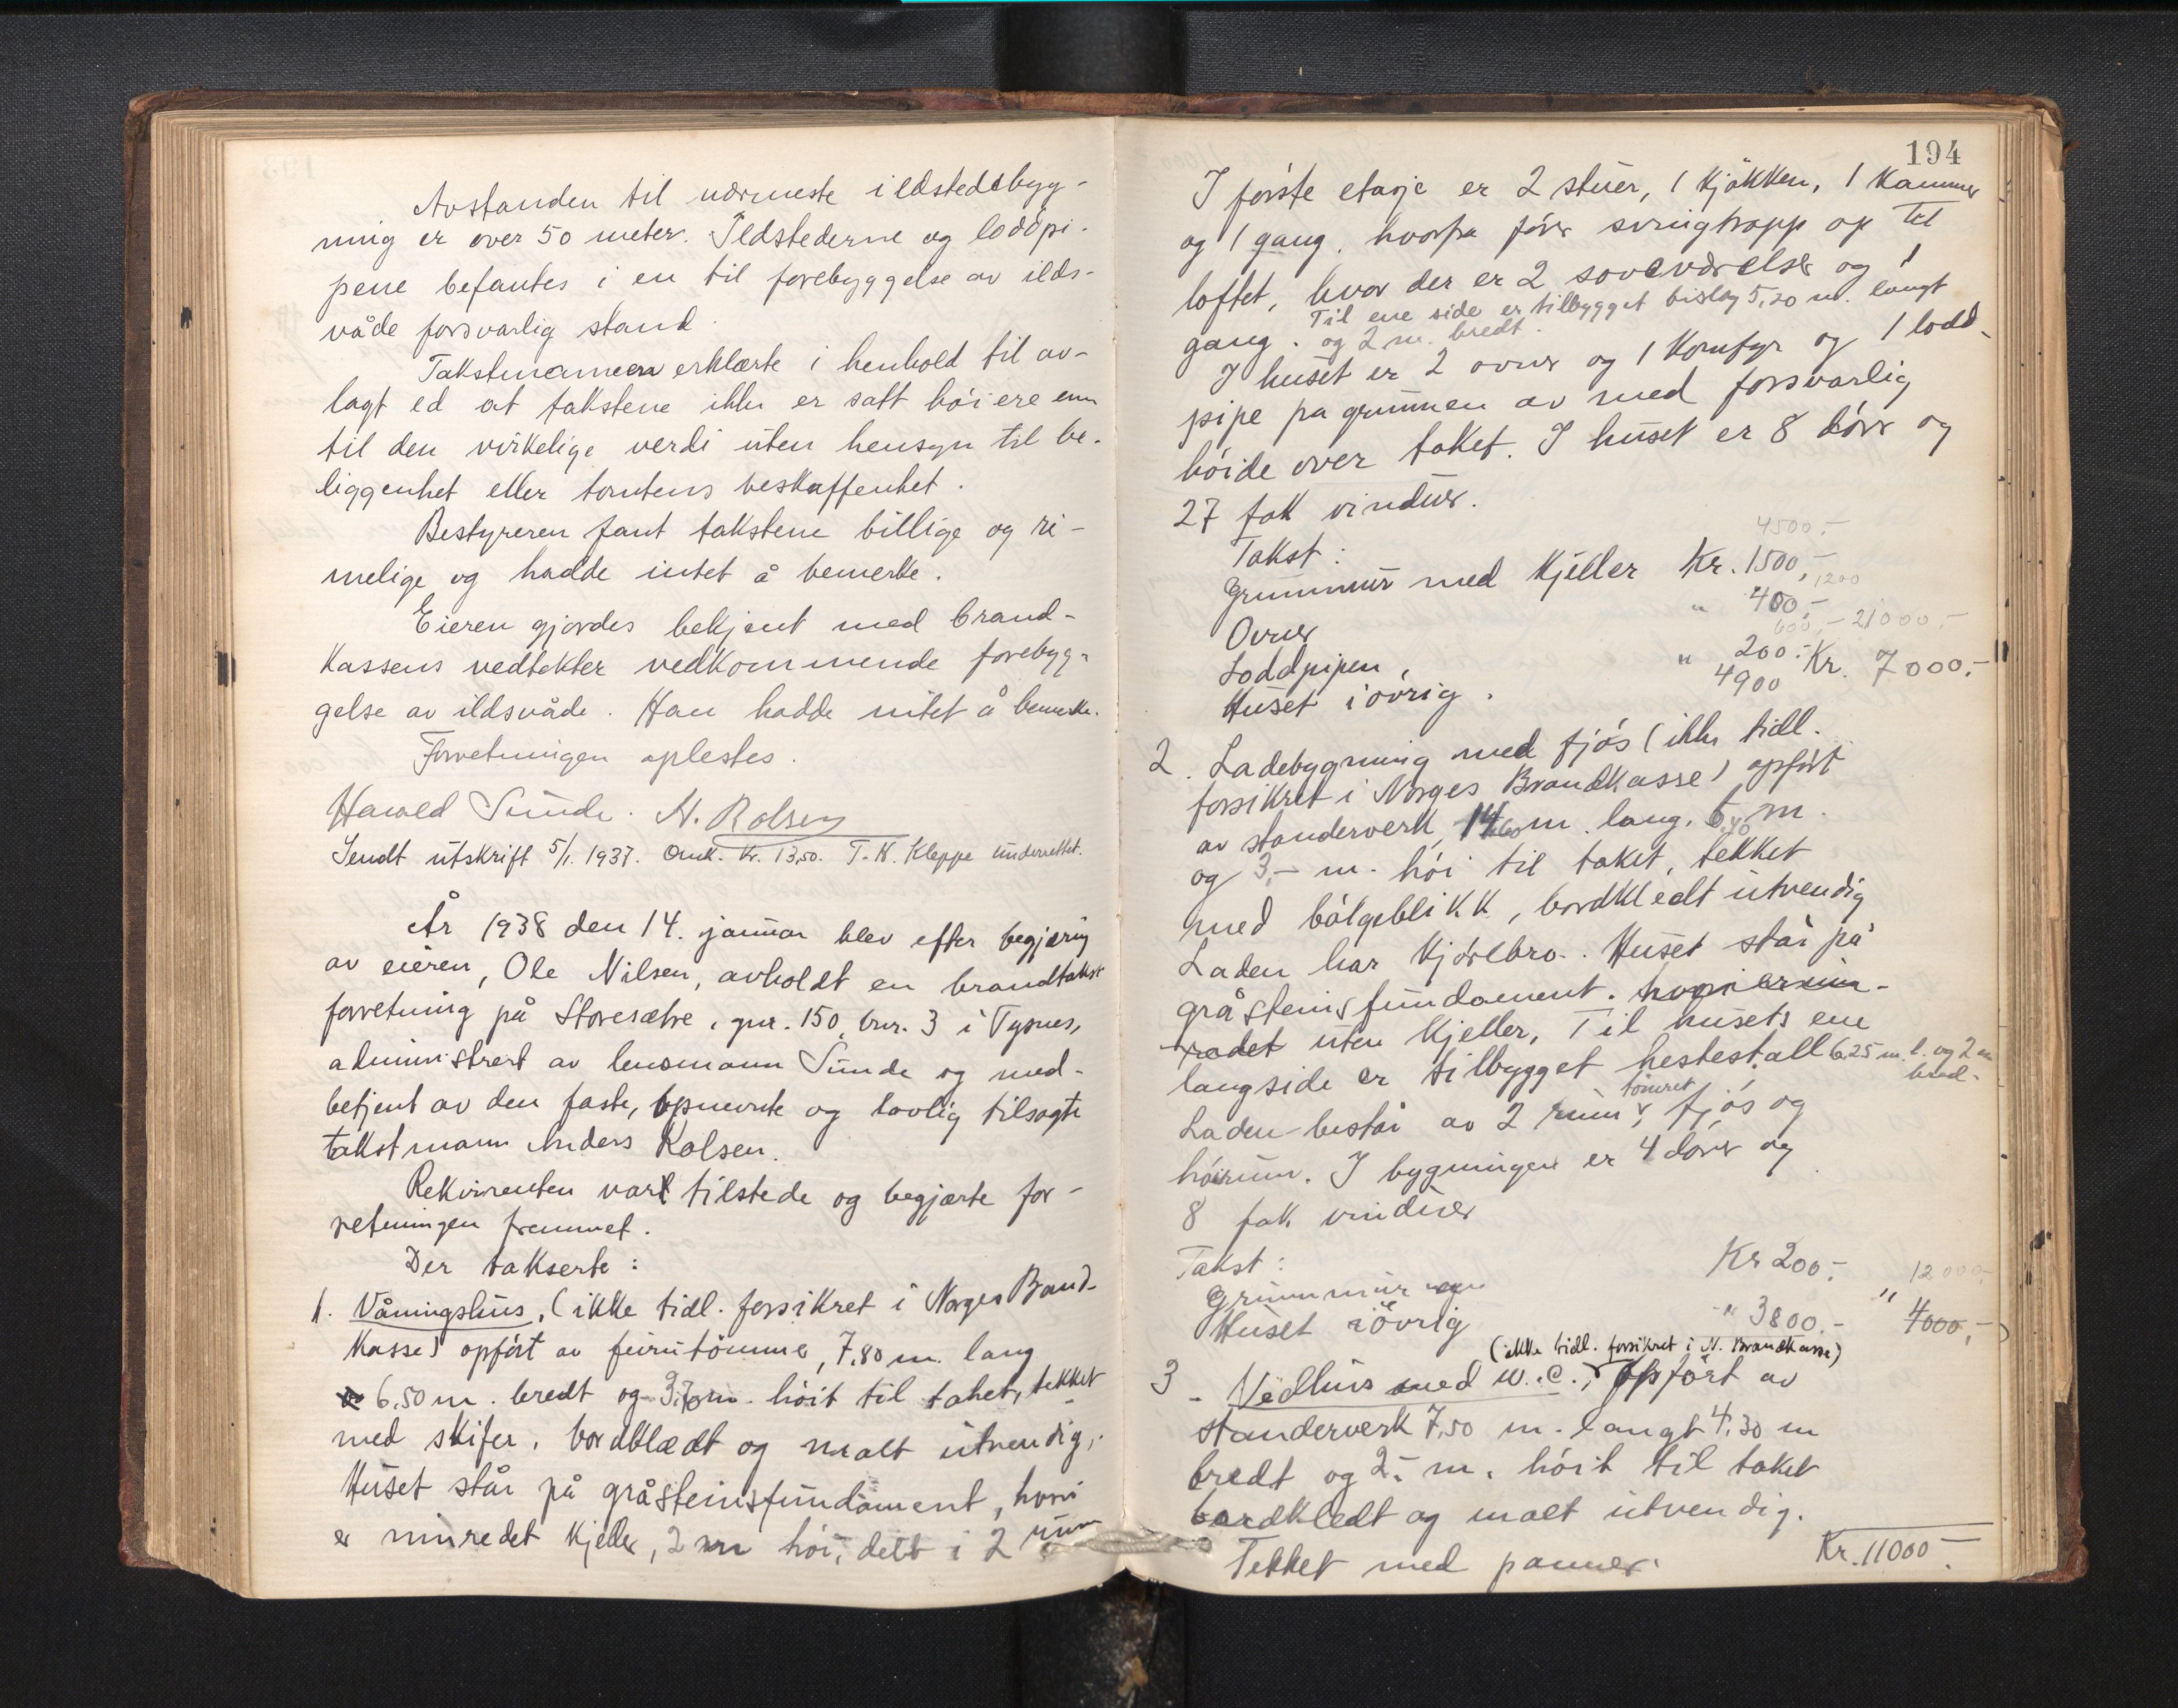 Avstanden til nærmeste ildstedsbyg-
ning er over 50 meter. Ildstederne og loddpi-
pene befantes i en til forebyggelse av ilds-
våde forsvarlig stand.
Takstmannen erklærte i henhold til av-
lagt ed at takstene ikke er satt høiere enn
til den virkelige verdi uten hensyn til be-
liggenhet eller tomtens beskaffenhet.
Bestyreren fant takstene billige og ri-
melige og hadde intet å bemerke.
Eieren gjordes bekjent med brand-
kassens vedtekter vedkommende forebyg-
gelse av ildsvåde. Han hadde intet å bemerke.
Forretningen oplestes.
Harald Sunde. A. Rolsen
Sendt utskrift 5/1. 1937. Omk. kr. 13,50. T. N. Kleppe underrettet.
År 1938 den 14. januar blev efter begjæring
av eieren, Ole Nilsen, avholdt en brandtakst
forretning på Storesætre, gnr. 150, bnr. 3 i Tysnes,
administrert av lensmann Sunde og med-
betjent av den faste, opnevnte og lovlig tilsagte
takstmann Anders Rolsen.
Rekvirenten var tilstede og begjærte for-
retningen fremmet.
Der takserte:
1. Våningshus, (ikke tidl. forsikret i Norges Brand-
kasse) opført av furutømmer, 7,80 m. lang
6,50 m. bredt og 3,70 m. høit til taket, tekket
med skifer, bordklædt og malt utvendig,
Huset står på gråsteinsfundament, hvori
er innredet kjeller, 2 m høi, delt i 2 rum
194
I første etasje er 2 stuer, 1 kjøkken, 1 kammer
og 1 gang, hvorfra fører svingtrapp op til
loftet, hvor der er 2 soveværelser og 1
Til ene side er tilbygget bislag 5,20 m. langt
gang. og 2 m. bredt.
I huset er 2 ovner og 1 komfyr og 1 lodd-
pipe på grunnen av med forsvarlig
høide over taket. I huset er 8 dører og
27 fak vinduer.
Takst: 4500.-
Grunnmur med kjeller Kr. 1500,-
1200
Ovner " 400,-
600,- 21000,-
Loddpipen, " 200.-
Huset iøvrig. 4900 Kr. 7000.-
2. Ladebygning med fjøs (ikke tidl.
forsikret i Norges Brandkasse) opført
av standerverk, 14,60 m. lang, 6,40 m.
og 3,- m. høi til taket, tekket
med bølgeblikk, bordkledt utvendig
Laden har kjørebro. Huset står på
gråsteinsfundament. hvori er inn-
redet uten kjeller, Til husets ene
langside er tilbygget hestestall 6,25 m. l. og 2 m
bred.
tømret
Laden består av 2 rum, fjøs og
høirum. I bygningen er 4 dører og
8 fak vinduer
Takst:
Grunnmur Kr 200.- 12000,-
Huset iøvrig " 3800.- " 4000,-
(ikke tidl. forsikret i N. Brandkasse)
3. Vedhus med W.C., opført av
standerverk 7,50 m. langt 4,30 m
bredt og 2,- m. høit til taket
bordkledt og malt utvendig.
Tekket med panner. Kr. 11000-